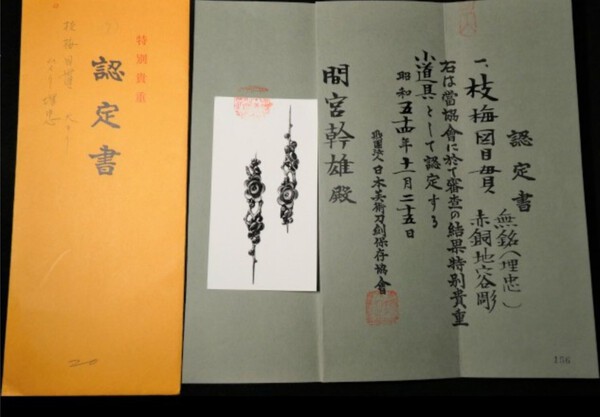 特別貴重
認定書
枝梅目貫
認定書
一、枝梅図目貫 無銘(埋忠)
赤銅地容彫
右は當協會に於て審査の結果特別貴重
小道具として認定する
昭和五十四年十一月二十五日
財團法人日本美術刀剣保存協會
間宮幹雄殿